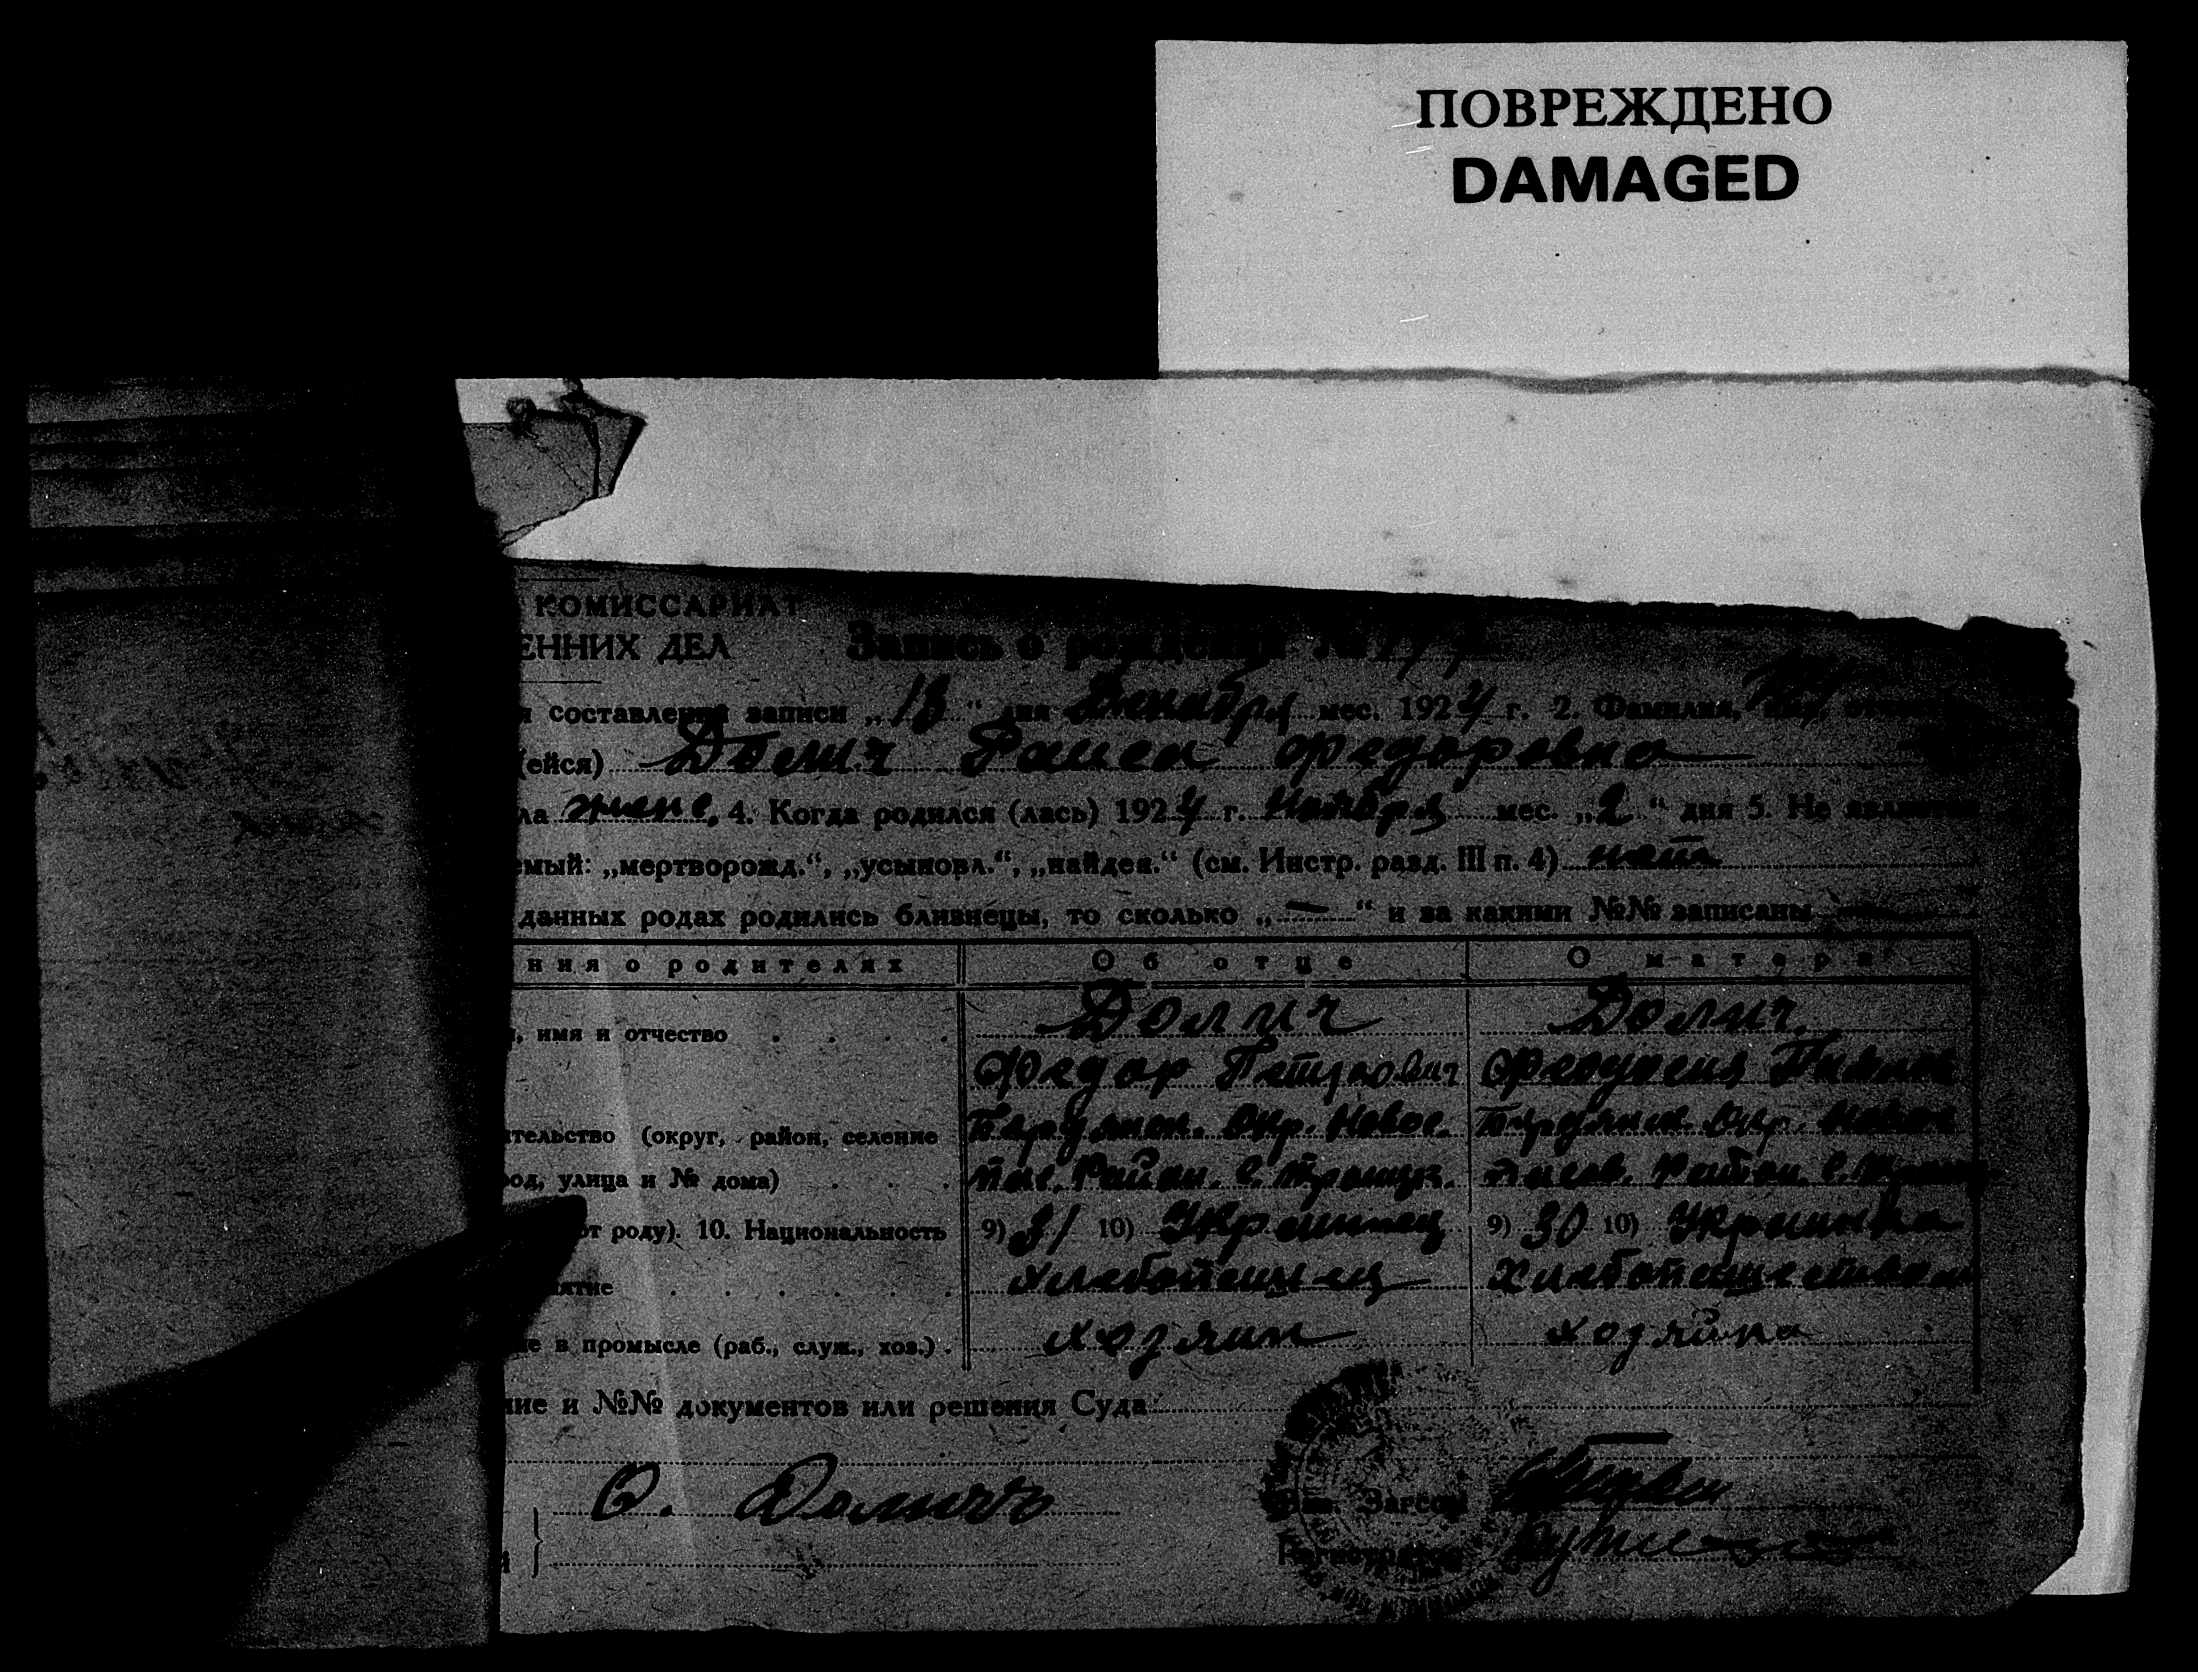 ПОВРЕЖДЕНО
DAMAGED
КОМИССАРИАТ
ЕННИХ ДЕЛ
Запись о рождении №
составления записи „13“ дня Декабря мес. 1924 г. 2. Фамилия, имя, отчество
(ейся) Долич Раиса Федоровна
ла жене. 4. Когда родился (лась) 1924 г. Ноября мес. „2“ дня 5. Не является
емый: „мертворожд.“, „усыновл.“, „найден.“ (см. Инстр. разд. III п. 4) нет
данных родах родились близнецы, то сколько „—“ и за какими №№ записаны —
ния о родителях Об отце О матери
имя и отчество . . . . Долич Долич
Федор Петрович Феодосия
тельство (округ, район, селение Бердянск. Окр. Новос. Бердянск. Окр. Новос
род, улица и № дома) . . . Район. с. Троицк. Район. с.
от роду). 10. Национальность 9) 31 10) Украинец 9) 30 10) Украинка
ятие . . . . . . хлебопашец хлебопашеством
ие в промысле (раб., служ., хоз.) . хозяин хозяйка
ние и №№ документов или решения Суда
Ф. Доличъ
Зав. Загсом
Регистратор